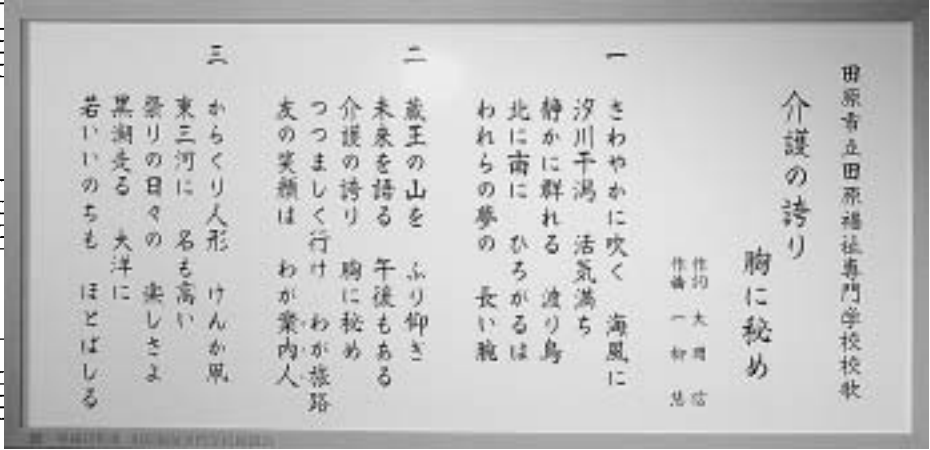 田原市立田原福祉専門学校校歌
介護の誇り
胸に秘め
作詞 大岡 信
作曲 一柳 慧
一
さわやかに吹く 海風に
汐川干潟 活気満ち
静かに群れる 渡り鳥
北に南に ひろがるは
われらの夢の 長い腕
二
蔵王の山を ふり仰ぎ
未来を語る 午後もある
介護の誇り 胸に秘め
つつましく行け わが旅路
友の笑顔は わが案内人
三
からくり人形 けんか凧
東三河に 名も高い
祭りの日々の 楽しさよ
黒潮走る 大洋に
若いいのちも ほとばしる